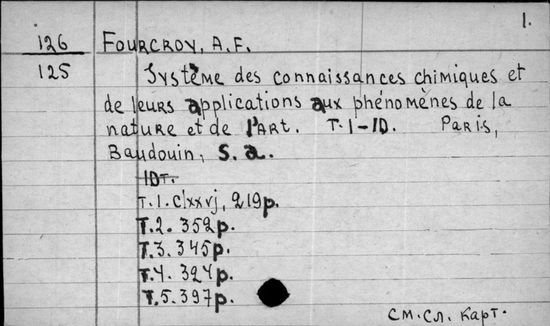 1.
126 FOURCROY, A.F.
125 Système des connaissances chimiques et
de leurs applications aux phénomènes de la
nature et de l'ART. T.1-10. PARIS,
Baudouin, s.a.
10T.
T.1. Clxxvj, 219p.
T.2. 352p.
T.3. 345p.
T.4. 324p.
T.5. 397p.
См. сл. карт.